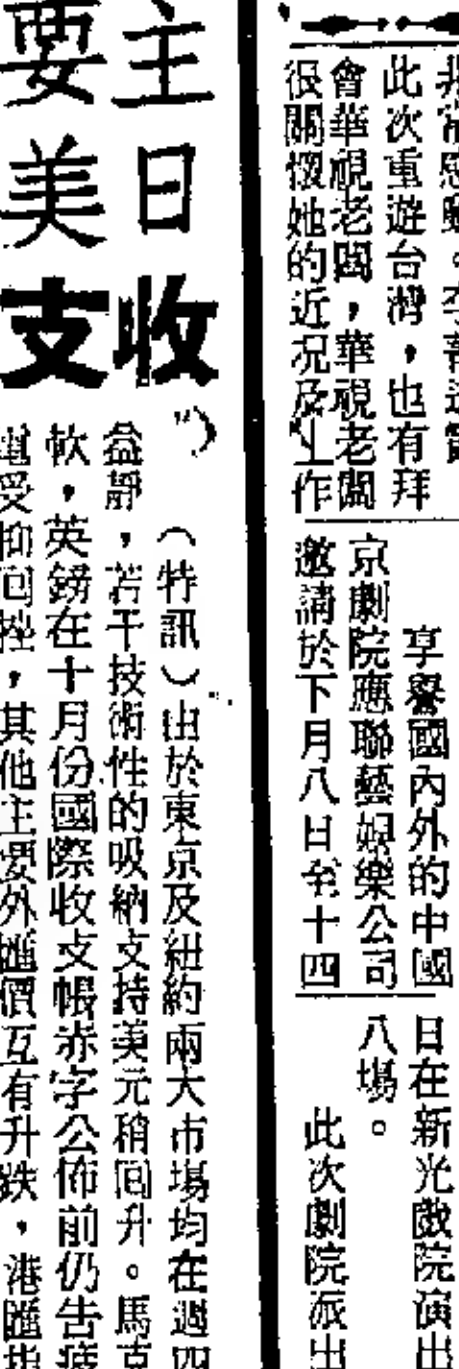 此次重遊台灣，也有拜
會華視老闆，華視老闆
很關懷她的近況及工作
享譽國內外的中國
京劇院應聯藝娛樂公司
邀請於下月八日至十四
日在新光戲院演出
八場。
此次劇院派出
主日收
要美支
（特訊）由於東京及紐約兩大市場均在週四
益靜，若干技術性的吸納支持美元稍回升。馬克
軟，英鎊在十月份國際收支帳赤字公佈前仍告疲
受抑回挫，其他主要外匯價互有升跌，港匯指